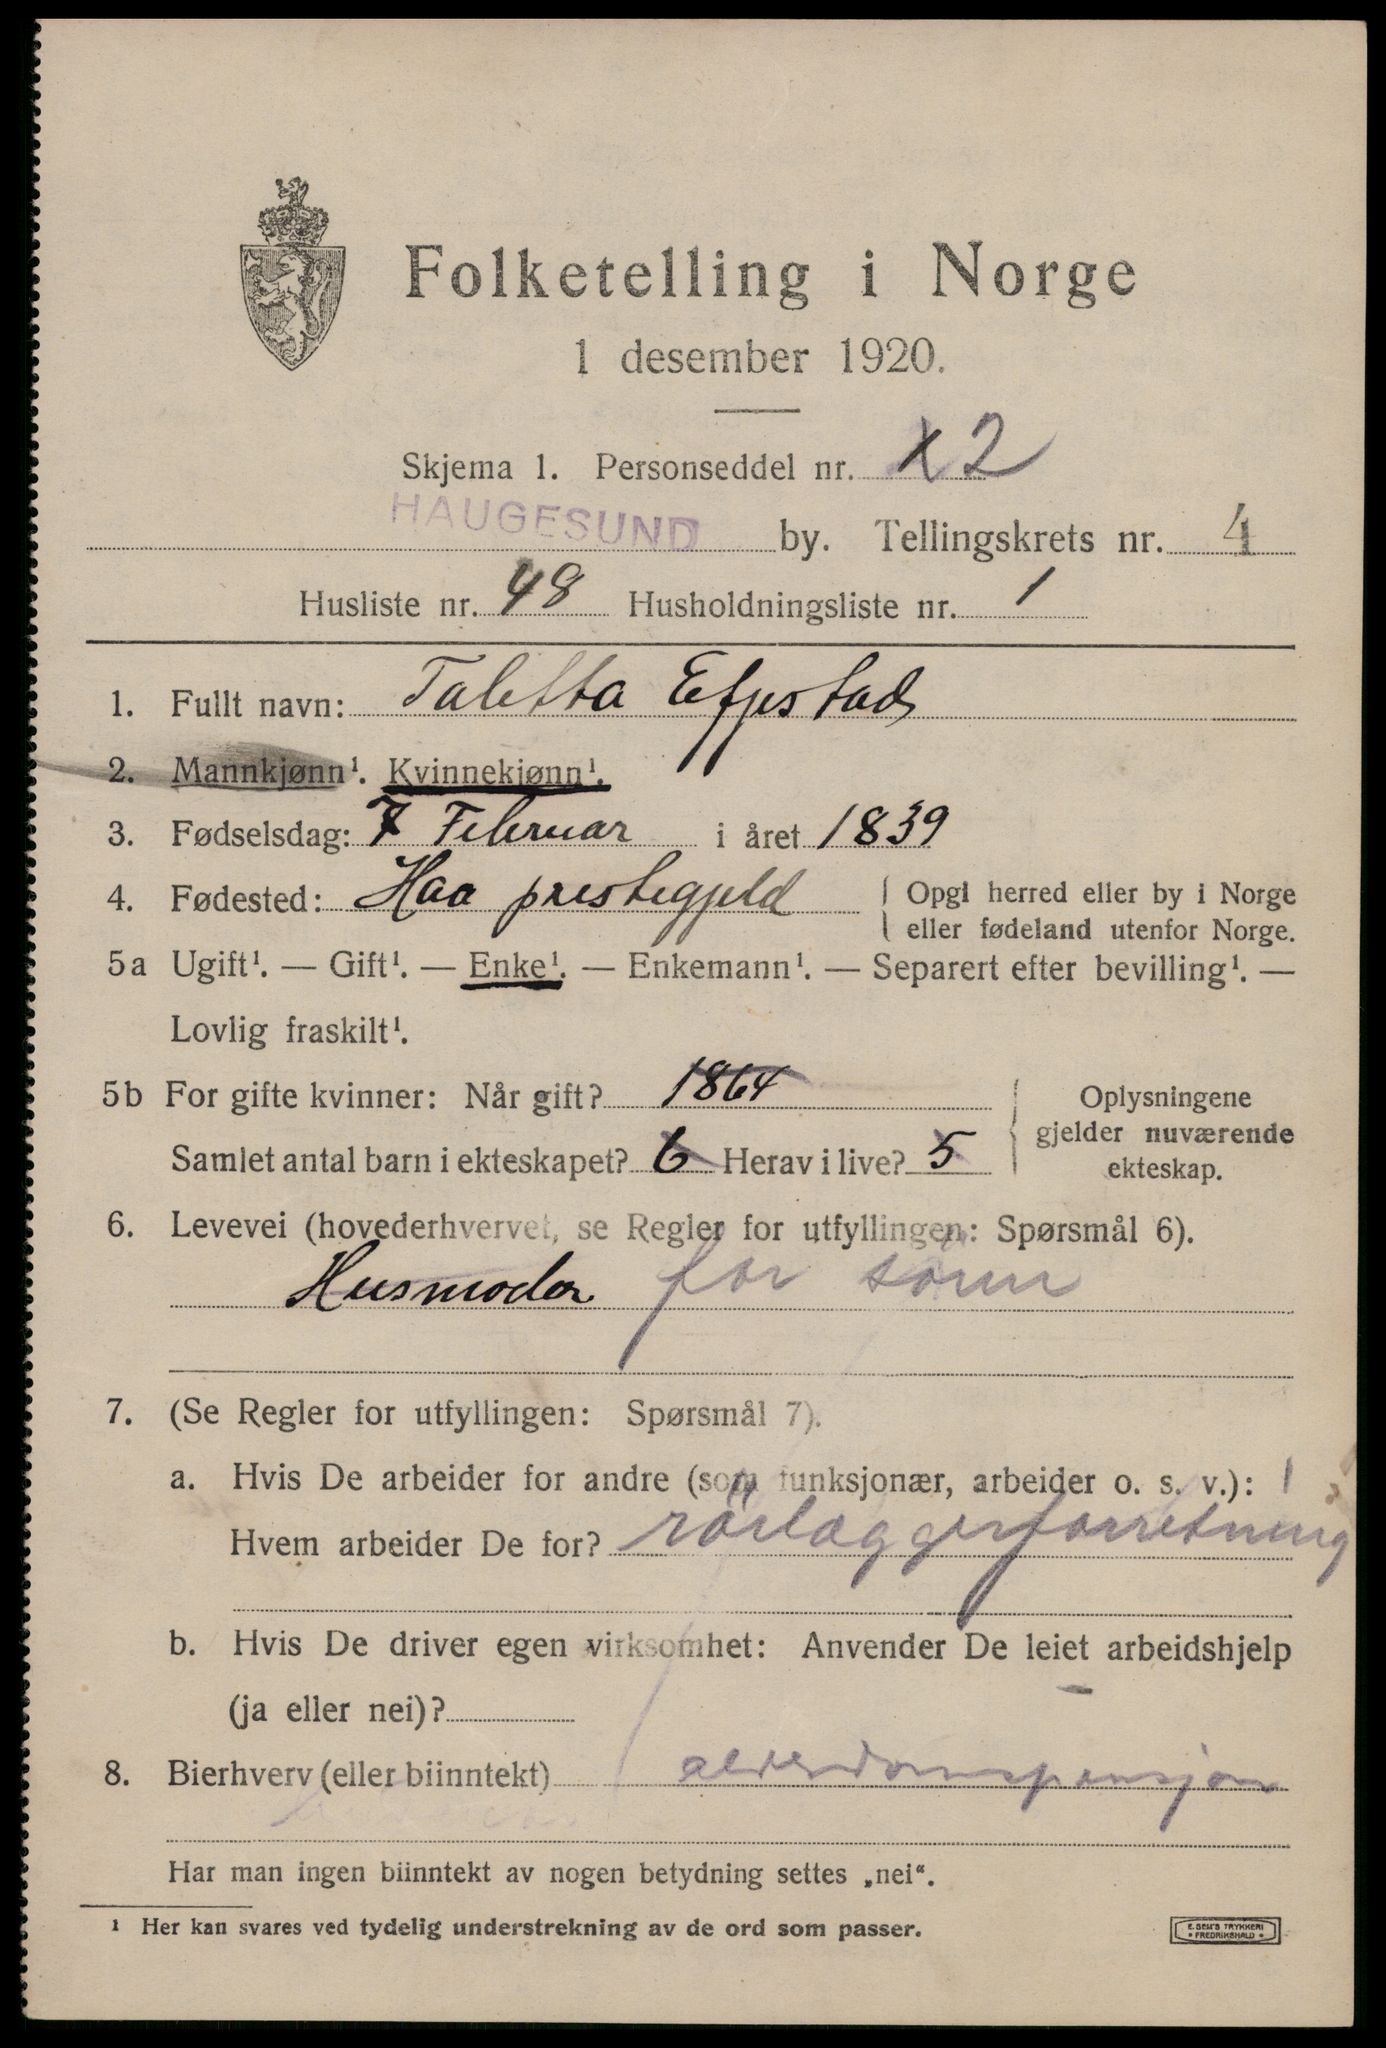 Folketelling i Norge
1 desember 1920.
Skjema 1. Personseddel nr. X2
HAUGESUND by. Tellingskrets nr. 4
Husliste nr. 48 Husholdningsliste nr. 1
1. Fullt navn: Taletta Efjestad
2. Mannkjønn¹. Kvinnekjønn¹.
3. Fødselsdag: 7 Februar i året 1839
4. Fødested: Haa prestegjeld { Opgi herred eller by i Norge
eller fødeland utenfor Norge.
5a Ugift¹. — Gift¹. — Enke¹. — Enkemann¹. — Separert efter bevilling¹. —
Lovlig fraskilt¹.
5b For gifte kvinner: Når gift? 1864
Samlet antal barn i ekteskapet? 6 Herav i live? 5
Oplysningene
gjelder nuværende
ekteskap.
6. Levevei (hovederhvervet, se Regler for utfyllingen: Spørsmål 6).
Husmoder for sönn
7. (Se Regler for utfyllingen: Spørsmål 7).
a. Hvis De arbeider for andre (som funksjonær, arbeider o. s. v.):
Hvem arbeider De for? rörlæggerforretning
b. Hvis De driver egen virksomhet: Anvender De leiet arbeidshjelp
(ja eller nei)?
8. Bierhverv (eller biinntekt) alderdomspensjon
Har man ingen biinntekt av nogen betydning settes „nei“.
¹ Her kan svares ved tydelig understrekning av de ord som passer.
E. SEM'S TRYKKERI
FREDRIKSHALD